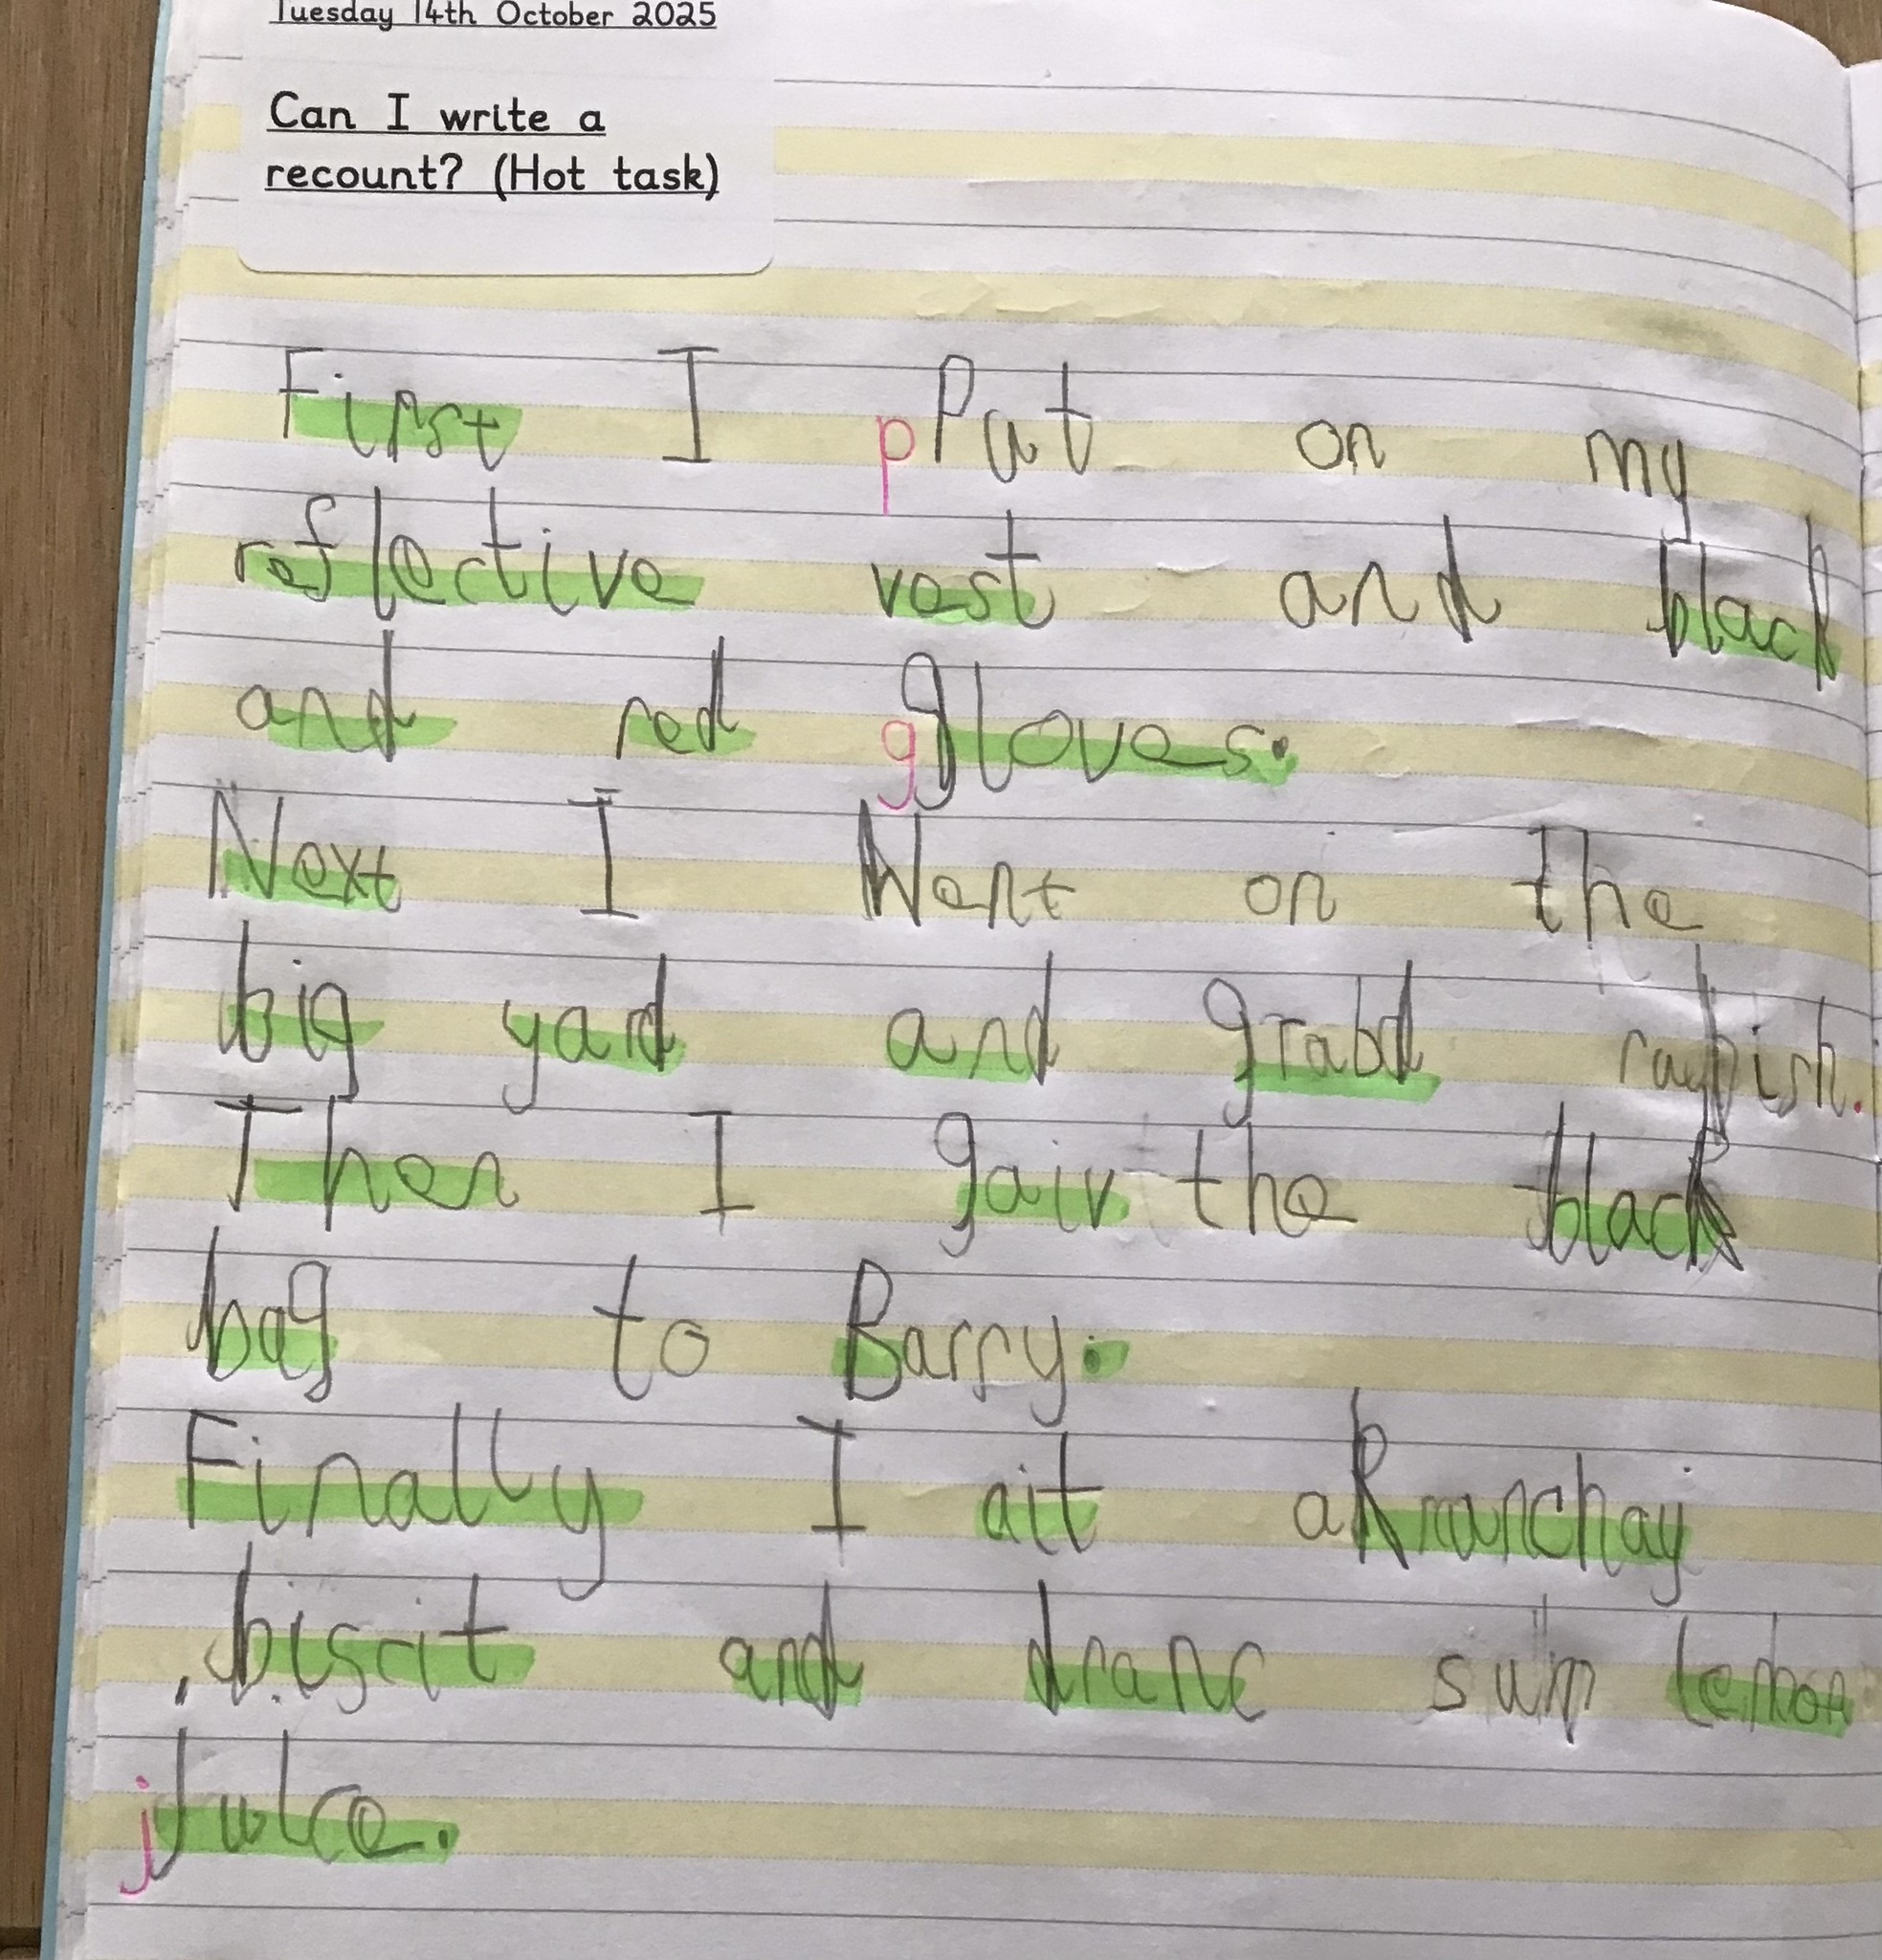 Tuesday 14th October 2025
Can I write a
recount? (Hot task)
First I p Put on my
reflective vest and black
and red g gloves.
Next I Went on the
big yard and grabd
Then I gaiv the black
bag to Barry.
Finally I ait a Krunchay
biscit and dranc sum lemon
j Juice.